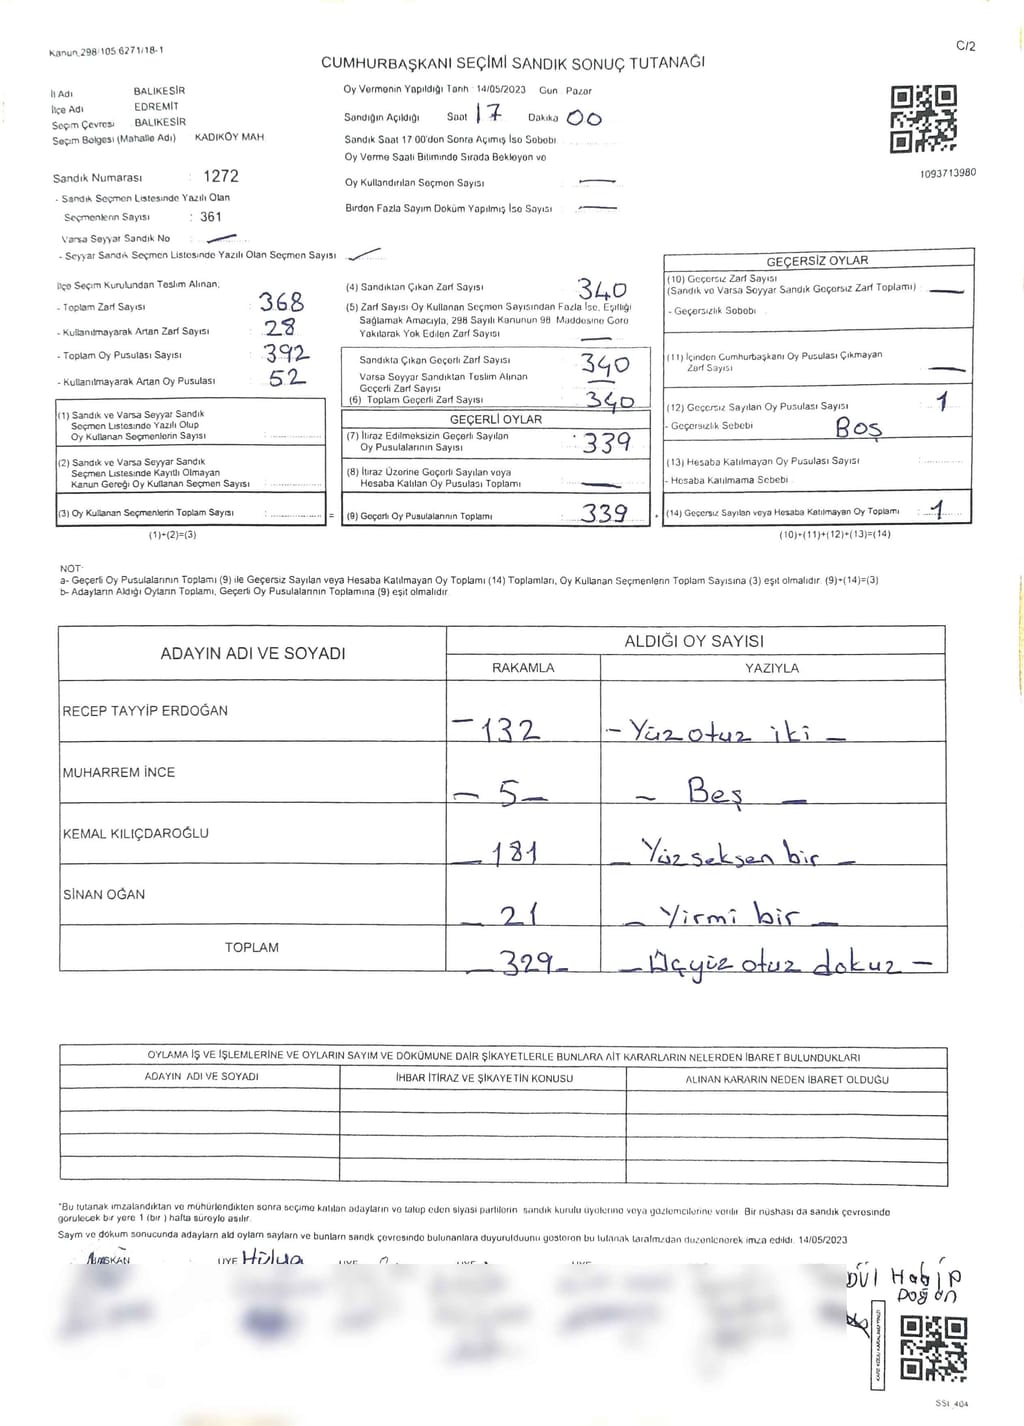 Kanun.298/105 6271/18-1
C/2
CUMHURBAŞKANI SEÇİMİ SANDIK SONUÇ TUTANAĞI
İl Adı BALIKESİR
İlçe Adı EDREMİT
Seçim Çevresi BALIKESİR
Seçim Bölgesi (Mahalle Adı) KADIKÖY MAH.
Oy Vermenin Yapıldığı Tarih 14/05/2023 Gün Pazar
Sandığın Açıldığı Saat 17 Dakika 00
Sandık Saat 17 00'den Sonra Açılmış İse Sebebi
Oy Verme Saati Bitiminde Sırada Bekleyen ve
Oy Kullandırılan Seçmen Sayısı —
Birden Fazla Sayım Döküm Yapılmış İse Sayısı —
1093713980
Sandık Numarası : 1272
- Sandık Seçmen Listesinde Yazılı Olan
Seçmenlerin Sayısı : 361
Varsa Seyyar Sandık No : —
- Seyyar Sandık Seçmen Listesinde Yazılı Olan Seçmen Sayısı : —
İlçe Seçim Kurulundan Teslim Alınan;
- Toplam Zarf Sayısı : 368
- Kullanılmayarak Artan Zarf Sayısı : 28
- Toplam Oy Pusulası Sayısı : 392
- Kullanılmayarak Artan Oy Pusulası : 52
(1) Sandık ve Varsa Seyyar Sandık
Seçmen Listesinde Yazılı Olup
Oy Kullanan Seçmenlerin Sayısı :
(2) Sandık ve Varsa Seyyar Sandık
Seçmen Listesinde Kayıtlı Olmayan
Kanun Gereği Oy Kullanan Seçmen Sayısı :
(3) Oy Kullanan Seçmenlerin Toplam Sayısı : =
(1)+(2)=(3)
(4) Sandıktan Çıkan Zarf Sayısı 340
(5) Zarf Sayısı Oy Kullanan Seçmen Sayısından Fazla İse, Eşitliği
Sağlamak Amacıyla, 298 Sayılı Kanunun 98 Maddesine Göre
Yakılarak Yok Edilen Zarf Sayısı —
Sandıkta Çıkan Geçerli Zarf Sayısı 340
Varsa Seyyar Sandıktan Teslim Alınan
Geçerli Zarf Sayısı —
(6) Toplam Geçerli Zarf Sayısı 340
GEÇERLİ OYLAR
(7) İtiraz Edilmeksizin Geçerli Sayılan
Oy Pusulalarının Sayısı : 339
(8) İtiraz Üzerine Geçerli Sayılan veya
Hesaba Katılan Oy Pusulası Toplamı : —
(9) Geçerli Oy Pusulalarının Toplamı : 339 +
GEÇERSİZ OYLAR
(10) Geçersiz Zarf Sayısı
(Sandık ve Varsa Seyyar Sandık Geçersiz Zarf Toplamı) : —
- Geçersizlik Sebebi
(11) İçinden Cumhurbaşkanı Oy Pusulası Çıkmayan
Zarf Sayısı —
(12) Geçersiz Sayılan Oy Pusulası Sayısı : 1
- Geçersizlik Sebebi Boş
(13) Hesaba Katılmayan Oy Pusulası Sayısı
- Hesaba Katılmama Sebebi
(14) Geçersiz Sayılan veya Hesaba Katılmayan Oy Toplamı : 1
(10)+(11)+(12)+(13)=(14)
NOT:
a- Geçerli Oy Pusulalarının Toplamı (9) ile Geçersiz Sayılan veya Hesaba Katılmayan Oy Toplamı (14) Toplamları, Oy Kullanan Seçmenlerin Toplam Sayısına (3) eşit olmalıdır. (9)+(14)=(3)
b- Adayların Aldığı Oyların Toplamı, Geçerli Oy Pusulalarının Toplamına (9) eşit olmalıdır
ADAYIN ADI VE SOYADI
ALDIĞI OY SAYISI
RAKAMLA YAZIYLA
RECEP TAYYİP ERDOĞAN -132 - Yüz otuz iki -
MUHARREM İNCE - 5 - - Beş -
KEMAL KILIÇDAROĞLU - 181 - Yüz seksen bir -
SİNAN OĞAN - 21 - Yirmi bir -
TOPLAM - 329 - - Üçyüz otuz dokuz -
OYLAMA İŞ VE İŞLEMLERİNE VE OYLARIN SAYIM VE DÖKÜMÜNE DAİR ŞİKAYETLERLE BUNLARA AİT KARARLARIN NELERDEN İBARET BULUNDUKLARI
ADAYIN ADI VE SOYADI İHBAR İTİRAZ VE ŞİKAYETİN KONUSU ALINAN KARARIN NEDEN İBARET OLDUĞU
*Bu tutanak imzalandıktan ve mühürlendikten sonra seçime katılan adayların ve talep eden siyasi partilerin sandık kurulu üyelerine veya gözlemcilerine verilir. Bir nüshası da sandık çevresinde
görülecek bir yere 1 (bir ) hafta süreyle asılır.
Sayım ve döküm sonucunda adayların ald oyların sayların ve bunların sandk çevresinde bulunanlara duyurulduunu gösteren bu tutanak tarafmzdan düzenlenerek imza edildi. 14/05/2023
BAŞKAN ÜYE Hülya ÜYE ÜYE ÜYE
Habip
Doğan
SSI_404